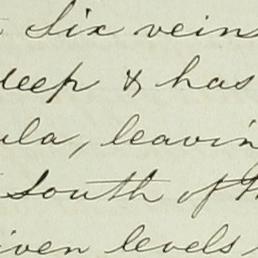 Six veins
deep & has
ula, leavin
South of th
iven levels